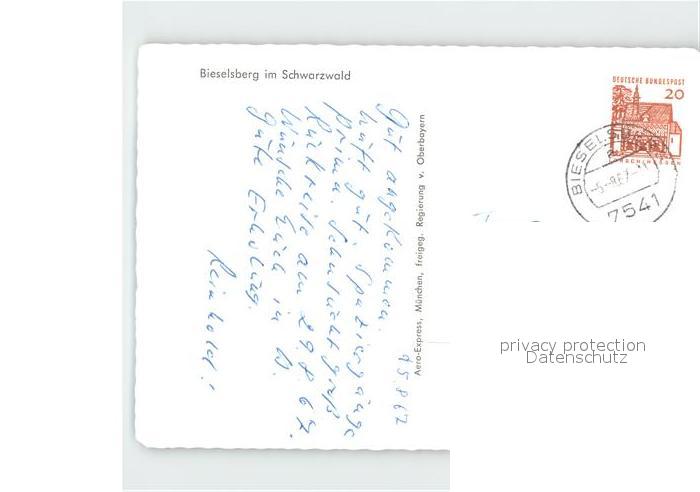 Bieselsberg im Schwarzwald
Gut angekommen.
Luft gut, Spaziergänge
prima. Sehnsucht groß
Rückreise am 29.8.67.
Wünsche Euch in D.
gute Erholung.
Reinhold!
5.8.67
Aero-Express, München, freigeg. Regierung v. Oberbayern
DEUTSCHE BUNDESPOST
20
LORSCH/HESSEN
BIESELSB
7541
privacy protection
Datenschutz